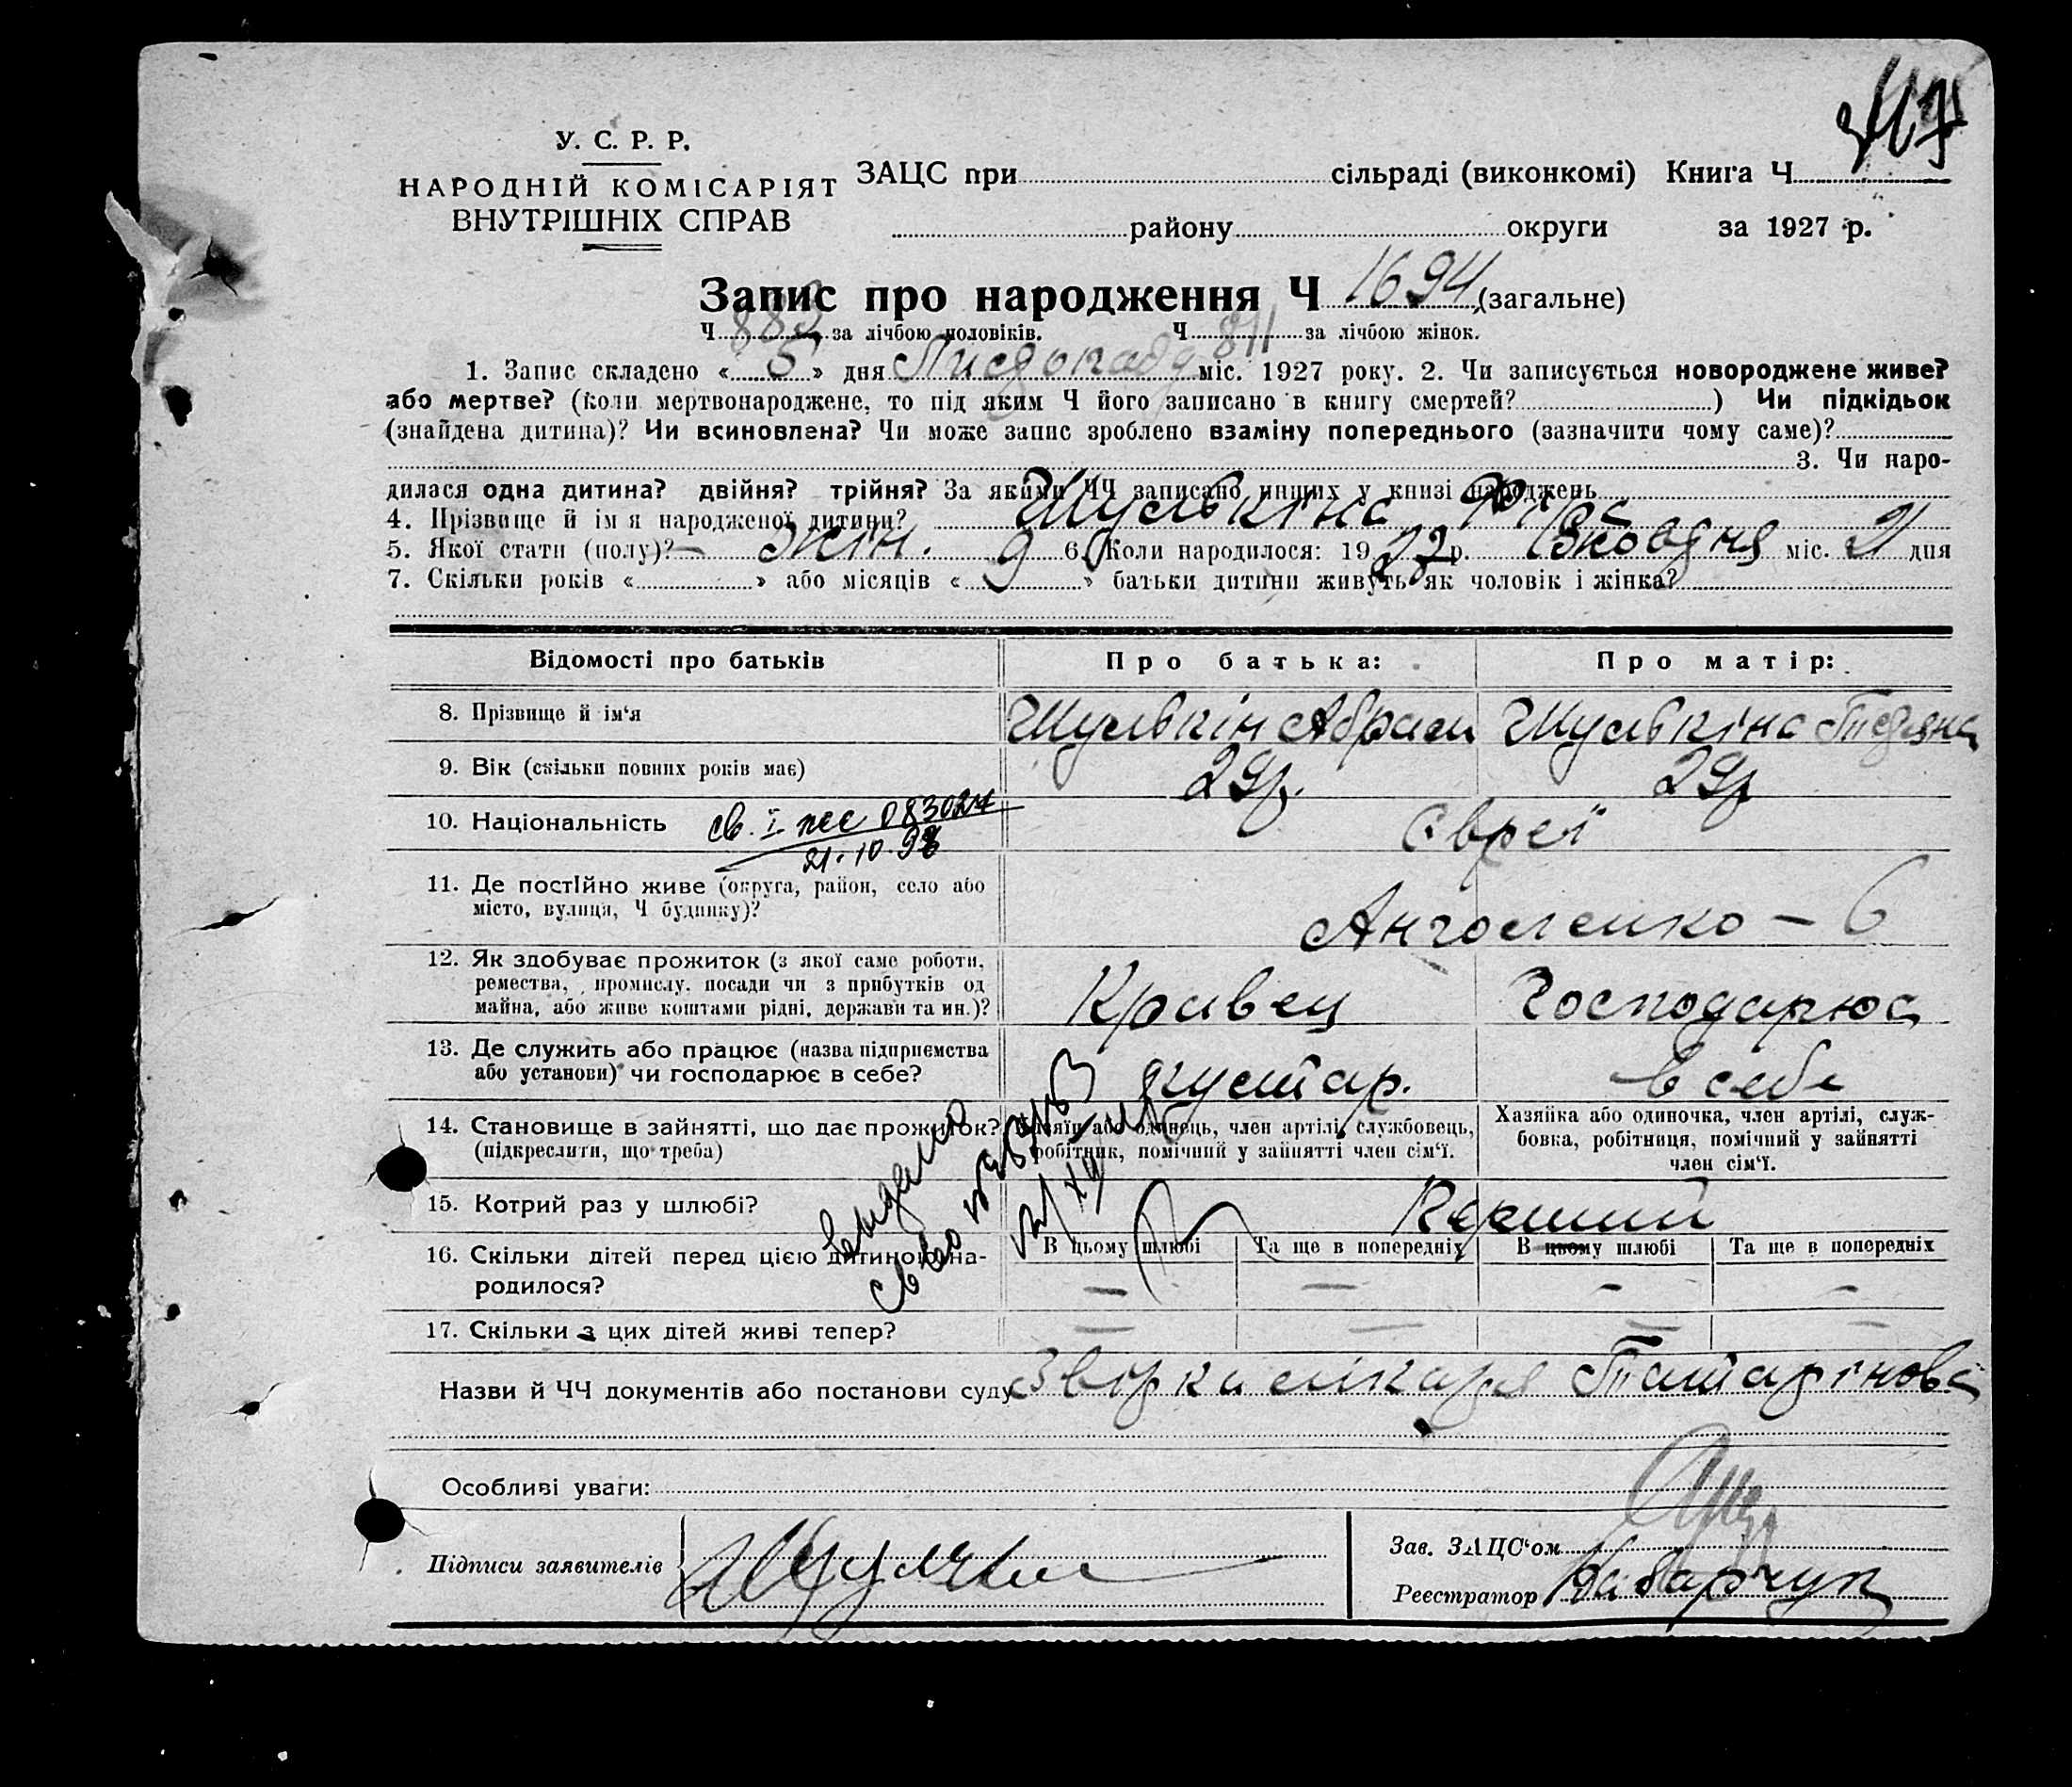 У. С. Р. Р.
НАРОДНІЙ КОМІСАРІЯТ
ВНУТРІШНІХ СПРАВ
ЗАЦС при сільраді (виконкомі) Книга Ч
району округи за 1927 р.
Запис про народження Ч 1694 (загальне)
Ч 883 за лічбою чоловіків. Ч 811 за лічбою жінок.
1. Запис складено « 5 » дня Листопаду міс. 1927 року. 2. Чи записується новороджене живе?
або мертве? (коли мертвонароджене, то під яким Ч його записано в книгу смертей? ) Чи підкідьок
(знайдена дитина)? Чи всиновлена? Чи може запис зроблено взаміну попереднього (зазначити чому саме)?
3. Чи наро-
дилася одна дитина? двійня? трійня? За якими ЧЧ записано инших у книзі народжень
4. Прізвище й ім'я народженої дитини? Шулькіна
5. Якої стати (полу)? Жін. 6. Коли народилося: 1927 р. Жовтня міс. 21 дня
7. Скільки років « » або місяців « 9 » батьки дитини живуть як чоловік і жінка?
Відомості про батьків Про батька: Про матір:
8. Прізвище й ім'я Шулькін Абрам Шулькіна Тетяна
9. Вік (скільки повних років має) 29р. 29р
10. Національність св. І жс 083024 Євреї
21.10.98
11. Де постійно живе (округа, район, село або
місто, вулиця, Ч будинку)? 6
12. Як здобуває прожиток (з якої саме роботи,
ремества, промислу, посади чи з прибутків од
майна, або живе коштами рідні, держави та ин.)? Кравець Господарює
13. Де служить або працює (назва підприємства
або установи) чи господарює в себе? кустар. в себе
14. Становище в зайнятті, що дає прожиток?
(підкреслити, що треба)
Хазяїн або одинець, член артілі, службовець,
робітник, помічний у зайнятті член сім'ї.
Хазяйка або одиночка, член артілі, служ-
бовка, робітниця, помічний у зайнятті
член сім'ї.
15. Котрий раз у шлюбі? Перший
16. Скільки дітей перед цією дитиною на-
родилося?
В цьому шлюбі Та ще в попередніх В цьому шлюбі Та ще в попередніх
— — — —
17. Скільки з цих дітей живі тепер? — — — —
видано
Назви й ЧЧ документів або постанови суду лікаря Татарінова
Особливі уваги:
Підписи заявителів
Зав. ЗАЦС'ом
Реєстратор